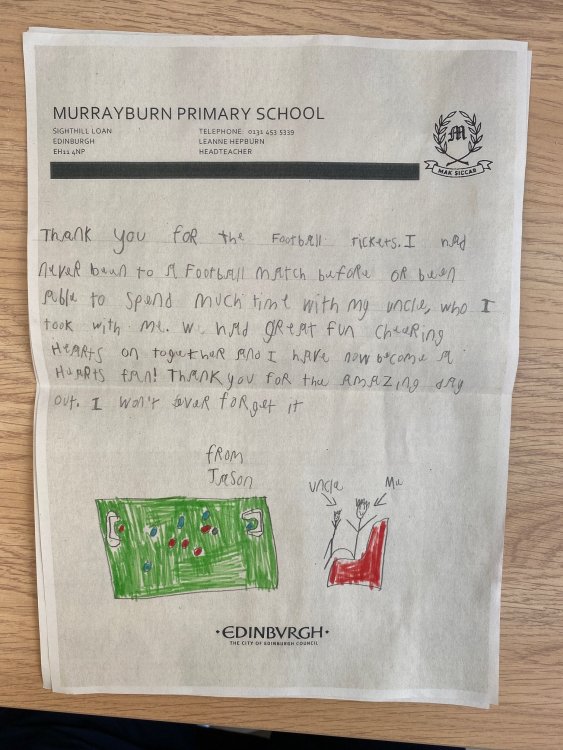 MURRAYBURN PRIMARY SCHOOL
SIGHTHILL LOAN
EDINBURGH
EH11 4NP
TELEPHONE: 0131 453 5339
LEANNE HEPBURN
HEADTEACHER
M
MAK SICCAR
Thank you for the Football Tickets. I had
never been to a Football match before or been
able to spend much time with my uncle, who I
took with me. We had great fun cheering
Hearts on together and I have now become a
Hearts fan! Thank you for the amazing day
out. I won't ever forget it
from
Jason
uncle
Me
·EDINBVRGH·
THE CITY OF EDINBURGH COUNCIL